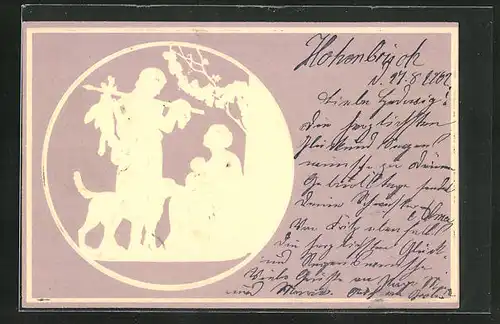 Hohenbruch
d. 27.8.1902
Liebe Hedwig!
Die herzlichsten
Glück und Segens
wünsche zu Deinem
Geburtstage sendet
Deine Schwester
Von Fritz ebenfalls
die herzlichsten Glück-
und Segenswünsche
Viele Grüße an
und